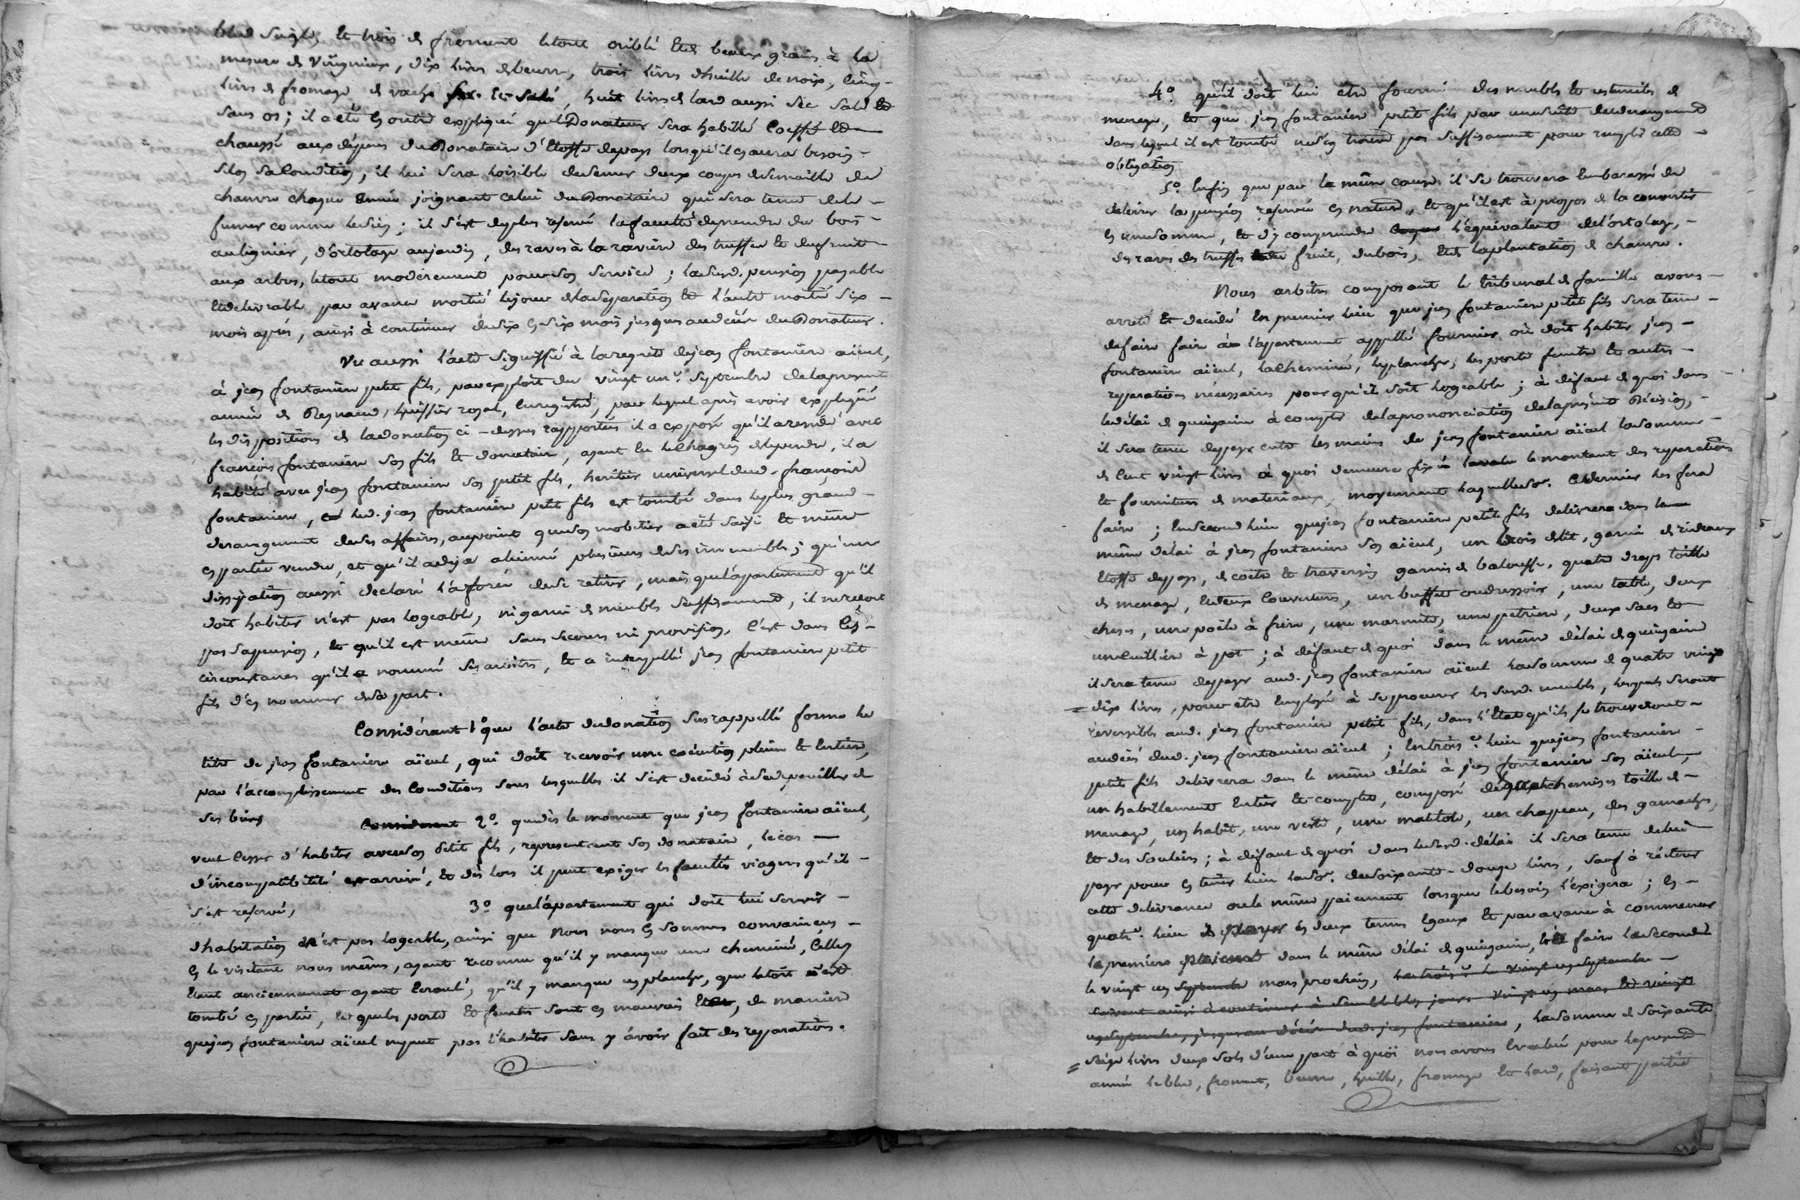 bled seigle, et trois de froment letout criblé et de beaux grains, à la
mesure de virignieux, dix livres de beurre, trois livres d'huille de noix, cinq
livres de fromage de vache sec et salé, huit livres de lard aussi sec salé et
sans os; il a eté en outre expliqué quele Donateur sera habillé coeffé et
chaussé aux dépens du Donataire d'Etoffe depays lorsqu'il en aura besoin
selon sa condition, il lui sera loisible de semer deux coupes de semaille de
chanvre chaque année joignant celui du Donataire qui sera tenu de le
fumer comme le sien; il s'est de plus reservé la faculté de prendre du bois
au lignier, d'ortolage au jardin, des raves à la ravière des truffes et du fruit
aux arbres, letout modérement pour son service; ladite pension payable
et délivrable par avance moitié le jour de la separation et l'autre moitié six
mois après, ainsi à continuer de six en six mois jusques au decès du Donateur.
Vu aussi l'acte signiffié à la requête de jean fontanière aïeul,
à jean fontanière petit fils, par exploit du vingt un Septembre de la presente
année de Reynaud, huissier royal, enregistré, par lequel après avoir expliqué
les dispositions de la donation ci-dessus rapportées il a exposé qu'il a residé avec
françois fontanière son fils et donataire, ayant eu le chagrin de le perdre, il a
habité avec jean fontanière son petit fils, héritier universel dud. françois
fontanière, led. jean fontanière petit fils est tombé dans le plus grand
derangement de ses affaires, au point que son mobilier a eté saisi et même
en partie vendu, et qu'il a deja aliéné plusieurs de ses immeubles; qu'une
dissipation aussi declaré l'a forcé de se retirer, mais que l'appartement qu'il
doit habiter n'est pas logeable, ni garni de meubles suffisament, il ne reçoit
pas sa pension, et qu'il est même sans secours ni provision, c'est dans ces
circonstances qu'il a nommé ses arbitres, et a interpellé jean fontanière petit
fils d'en nommer de sa part.
Considérant 1º que l'acte de donation sus rappellé forme le
titre de jean fontanière aïeul, qui doit recevoir une exécution pleine et entière,
par l'accomplissement des conditions sous lesquelles il s'est decidé à se depouiller de
ses biens
2º. que dès le moment que jean fontanière aïeul,
veut cesser d'habiter avec son petit fils, representant son donataire, le cas
d'incompatibilité est arrivé, et dès lors il peut exiger les facultés viageres qu'il
s'est reservé,
3º quel'apartement qui doit lui servir
d'habitation n'est pas logeable, ainsi que nous nous en sommes convaincus
en le visitant nous mêmes, ayant reconnu qu'il y manque une cheminée, celle
etant anciennement ayant ecroulé, qu'il y manque un plancher, que le toit est
tombé en partie, les quels portes et fenetres sont en mauvais Etat, de maniere
que jean fontanière aïeul ne peut pas l'habiter sans y avoir fait des reparations.
4º. qu'il doit lui etre fourni des meubles et ustensiles de
menage, et que jean fontanière petit fils par une suite du derangement
dans lequel il est tombé n'en a pas suffisament pour remplir cette
obligation
5º. Enfin que par la même cause il se trouvera embarassé de
delivrer la pension reservée en nature, et qu'il est à propos de la convertir
en une somme, et d'y comprendre l'equivalent de l'ortolage,
des raves des truffes fruit, du bois, et la plantation de chanvre.
Nous arbitres composant le tribunal de famille avons
arreté et decidé en premier lieu que jean fontanière petit fils sera tenu
de faire faire à l'appartement appellé fournier où doit habiter jean
fontanière aïeul, la cheminée, le plancher, les portes fenetres et autres
reparations nécessaires pour qu'il soit logeable; à défaut de quoi dans
le délai de quinzaine à compter de la prononciation de la présente Décision,
il sera tenu de payer entre les mains de jean fontanière aïeul la somme
de cent vingt livres à quoi demeure fixé le montant des reparations
et fourniture de materiaux, moyennant laquelle so. ce dernier les fera
faire; En second lieu que jean fontanière petit fils delivrera dans le
même délai à jean fontanière son aïeul, un bois de lit, garni de rideaux
etoffe de pays, de coëtre et traversin garnis de balouffe, quatre draps toille
de menage, et deux couvertures, un buffet ou dressoir, une table, deux
cheses, une poële à frire, une marmite, une petrière, deux sacs et
une cuillère à pot; à défaut de quoi dans le même délai de quinzaine
il sera tenu de payer aud. jean fontanière aïeul la somme de quatre vingt
dix livres, pour etre employé à se procurer les susd. meubles, lesquels seront
reversibles aud. jean fontanière petit fils, dans l'etat qu'ils se trouveront
au decès dud. jean fontanière aïeul; En trois.e lieu que jean fontanière
petit fils delivrera dans le même délai à jean fontanière son aïeul,
un habillement entier et complet, composé de quatre chemises toille de
menage, un habit, une veste, une matelote, un chapeau, des gamaches,
et des souliers; à défaut de quoi dans le susd. délai il sera tenu de lui
payer pour en tenir lieu la so. de soixante-douze livres, sauf à réiterer
cette delivrance ou le même paiement lorsque le besoin l'exigera; En
quatr.e lieu de payer en deux termes egaux et par avance à commencer
le premier paiement dans le même délai de quinzaine, et faire le second
le vingt un mars prochain, le trois.e le vingt un septembre
suivant ainsi à continuer à semblables jours vingt un mars et vingt
un septembre, jusqu'au décès dud. jean fontanière, la somme de soixante
seize livres deux sols d'une part à quoi nous avons évalué pour la presente
année le bled, froment, beurre, huille, fromage et lard, faisant partie